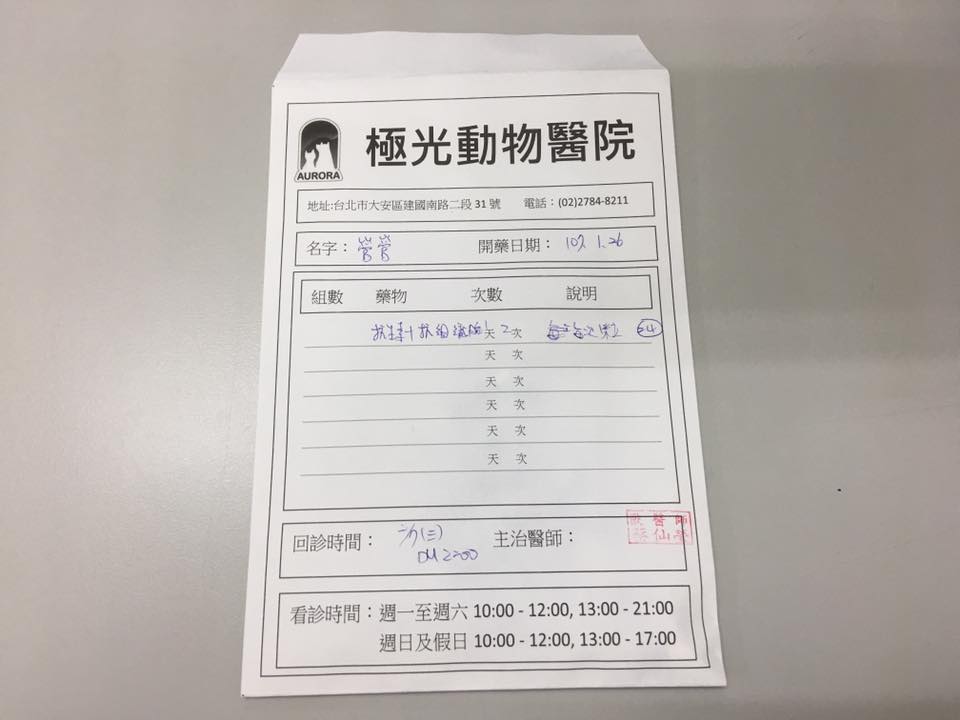 極光動物醫院
AURORA
地址:台北市大安區建國南路二段 31 號 電話：(02)2784-8211
名字： 開藥日期： 107. 1. 26
組數 藥物 次數 說明
抗生素+抗組織胺 天 2 次
天 次
天 次
天 次
天 次
天 次
回診時間： (三) 主治醫師：
獸醫師
仙
看診時間：週一至週六 10:00 - 12:00, 13:00 - 21:00
週日及假日 10:00 - 12:00, 13:00 - 17:00